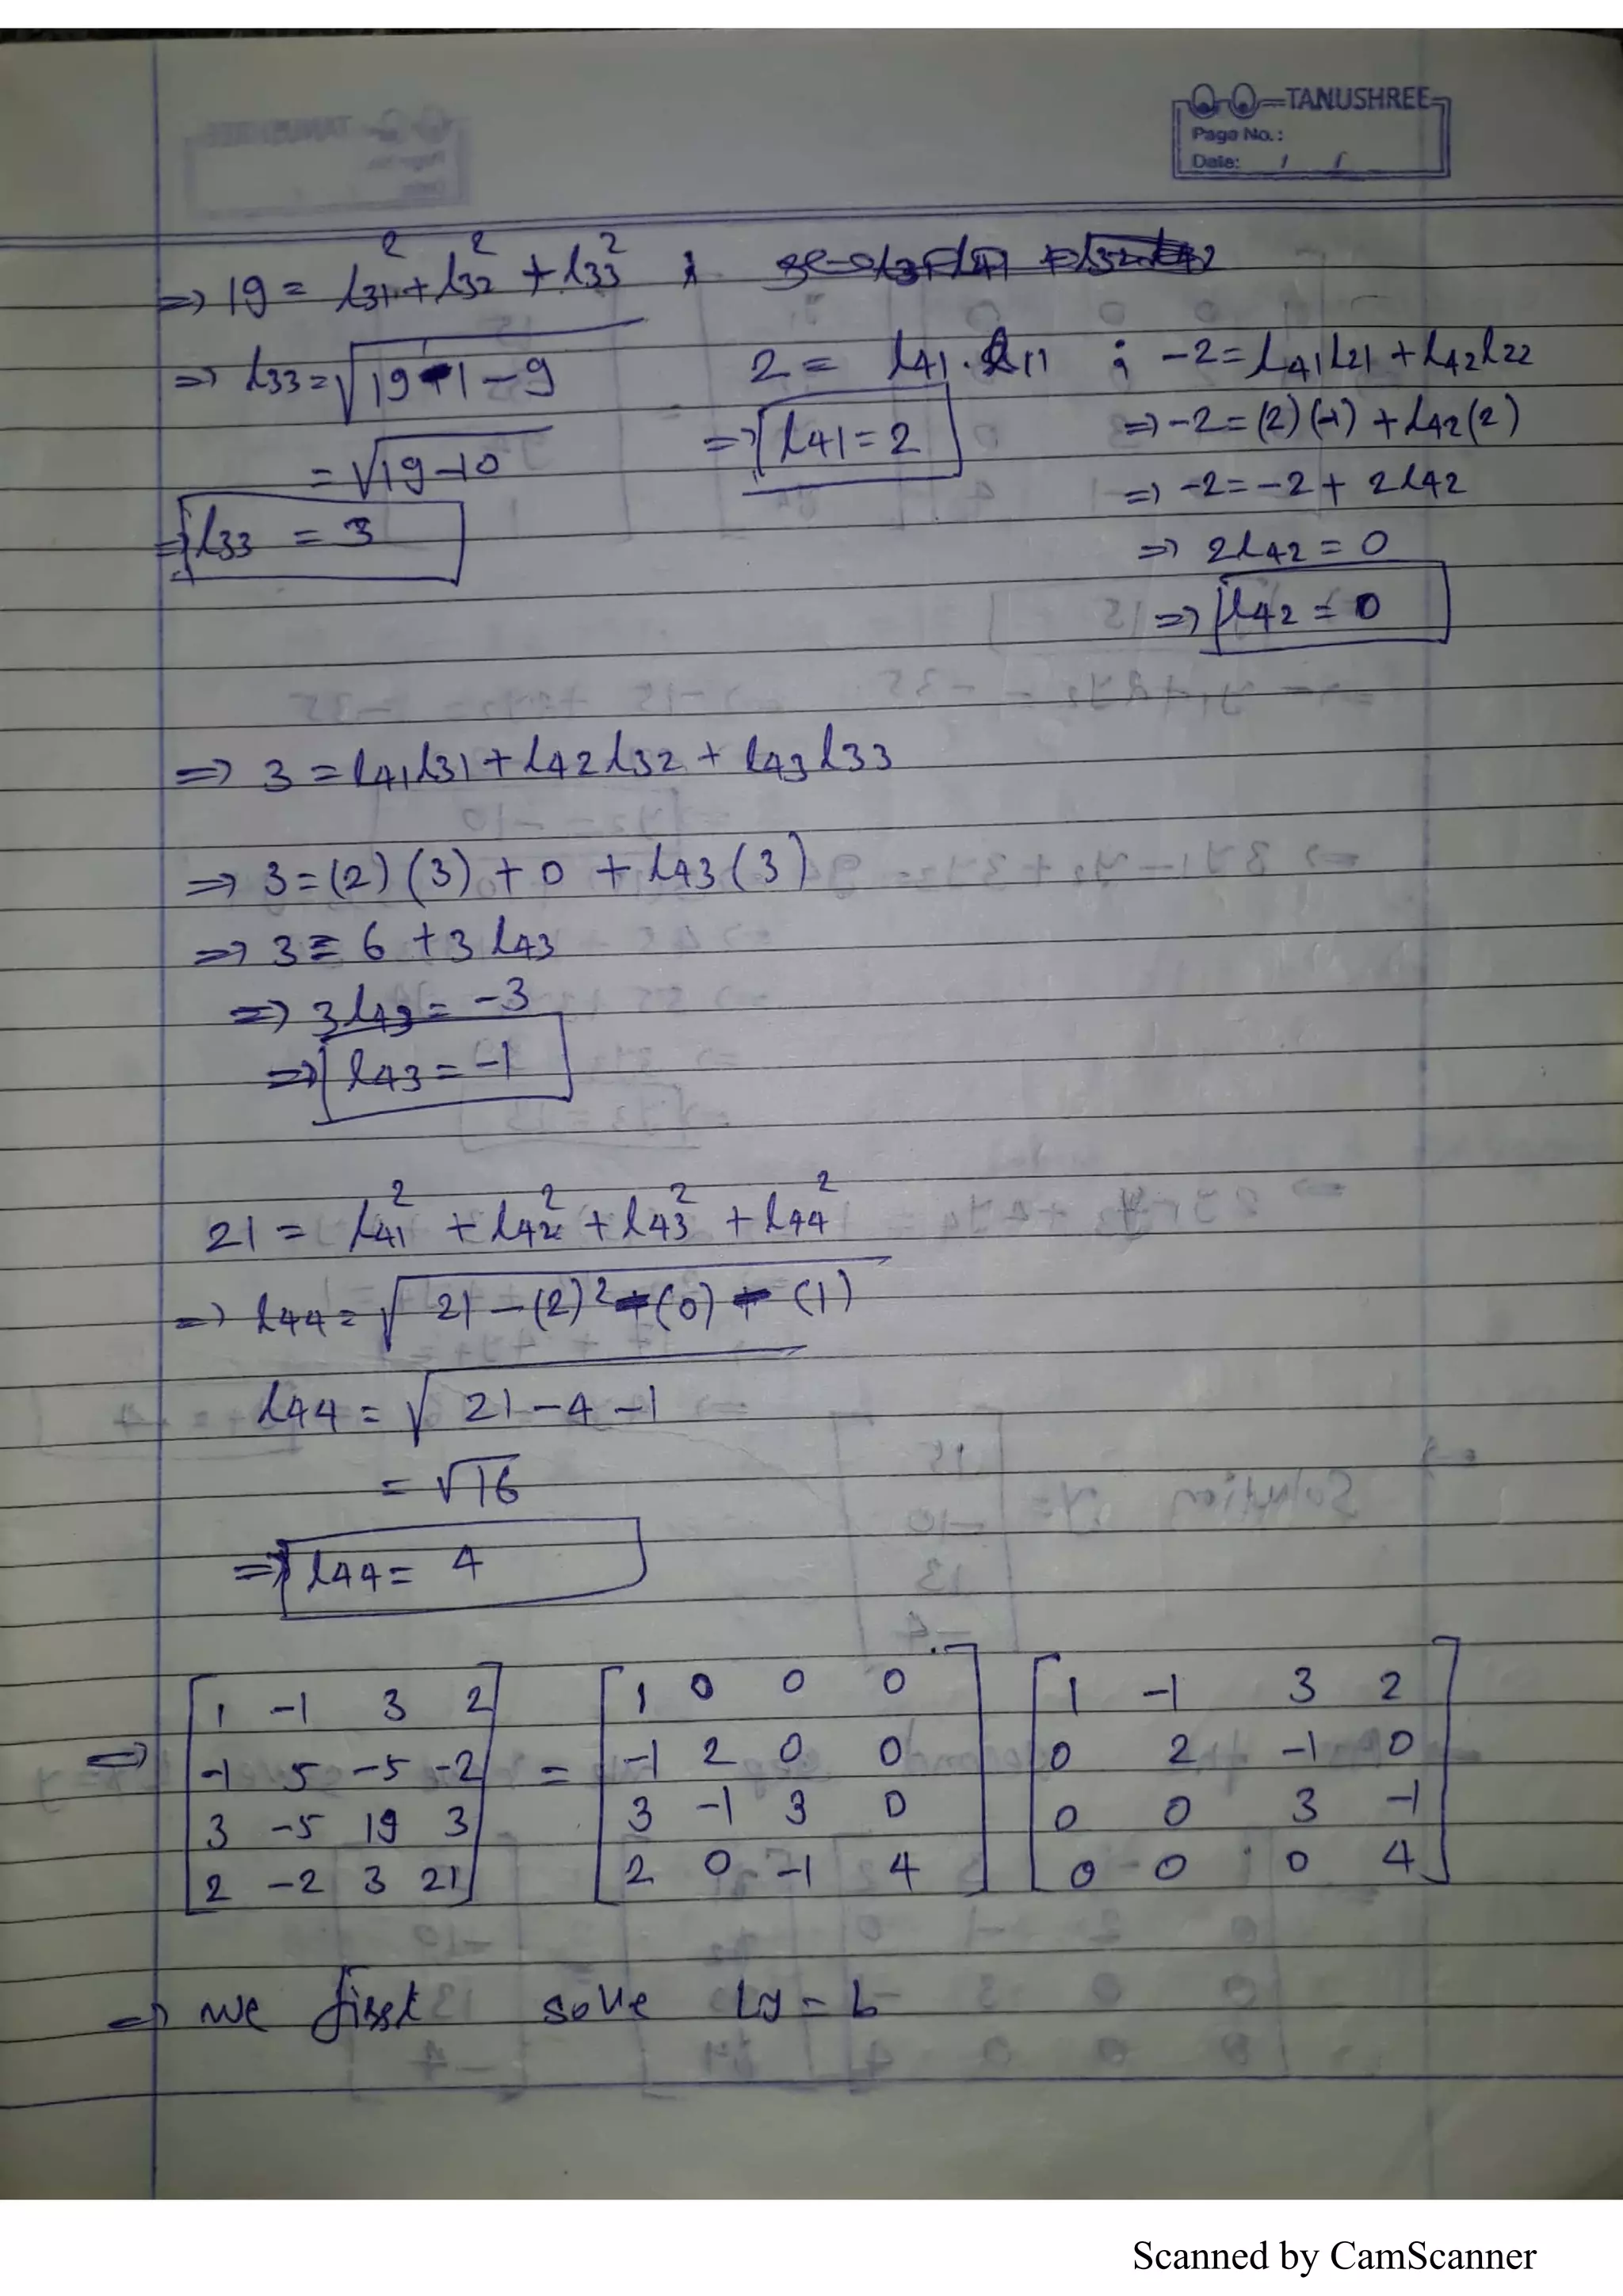 TANUSHREE
Page No.:
Date: / /
=> 19 = l31² + l32² + l33² ;
=> l33 = √19-1-9
= √19-10
=> l33 = 3
2 = l41 . l11 ; -2 = l41l21 + l42l22
=> l41 = 2
=> -2 = (2)(-1) + l42(2)
=> -2 = -2 + 2l42
=> 2l42 = 0
=> l42 = 0
=> 3 = l41l31 + l42l32 + l43l33
=> 3 = (2)(3) + 0 + l43(3)
=> 3 = 6 + 3l43
=> 3l43 = -3
=> l43 = -1
21 = l41² + l42² + l43² + l44²
=> l44 = √21-(2)²-(0)-(1)
l44 = √21-4-1
= √16
=> l44 = 4
=> [1 -1 3 2] = [1 0 0 0] [1 -1 3 2]
[-1 5 -5 -2] [-1 2 0 0] [0 2 -1 0]
[3 -5 19 3] [3 -1 3 0] [0 0 3 -1]
[2 -2 3 21] [2 0 -1 4] [0 0 0 4]
=> we first solve Ly = b
Scanned by CamScanner